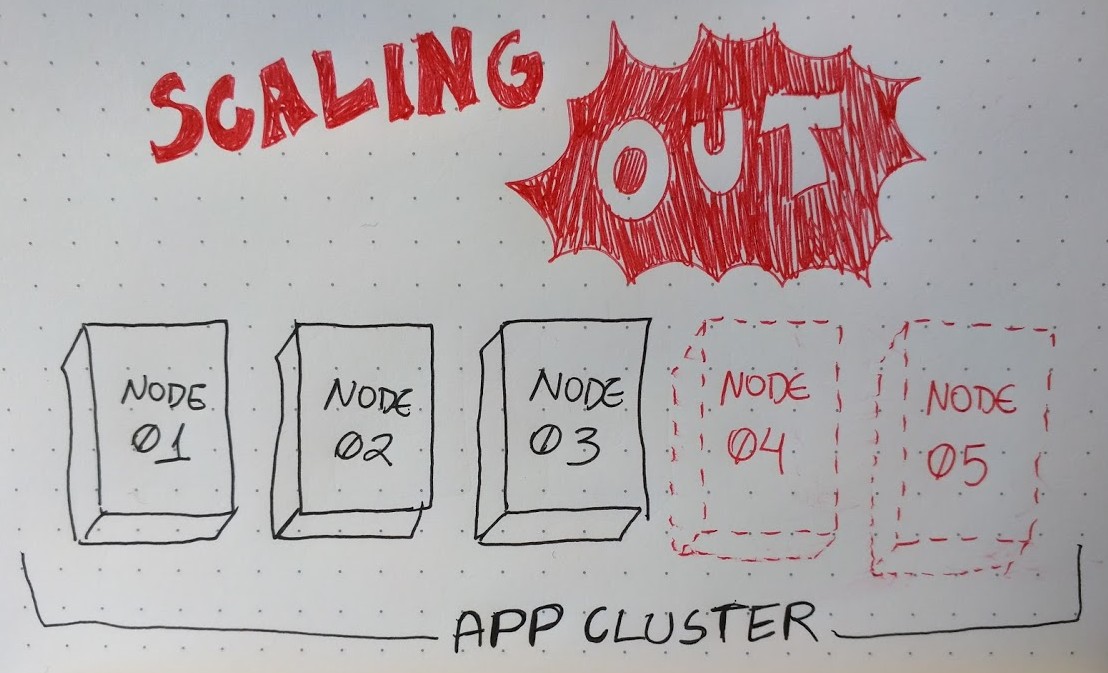 SCALING OUT
NODE 01
NODE 02
NODE 03
NODE 04
NODE 05
APP CLUSTER